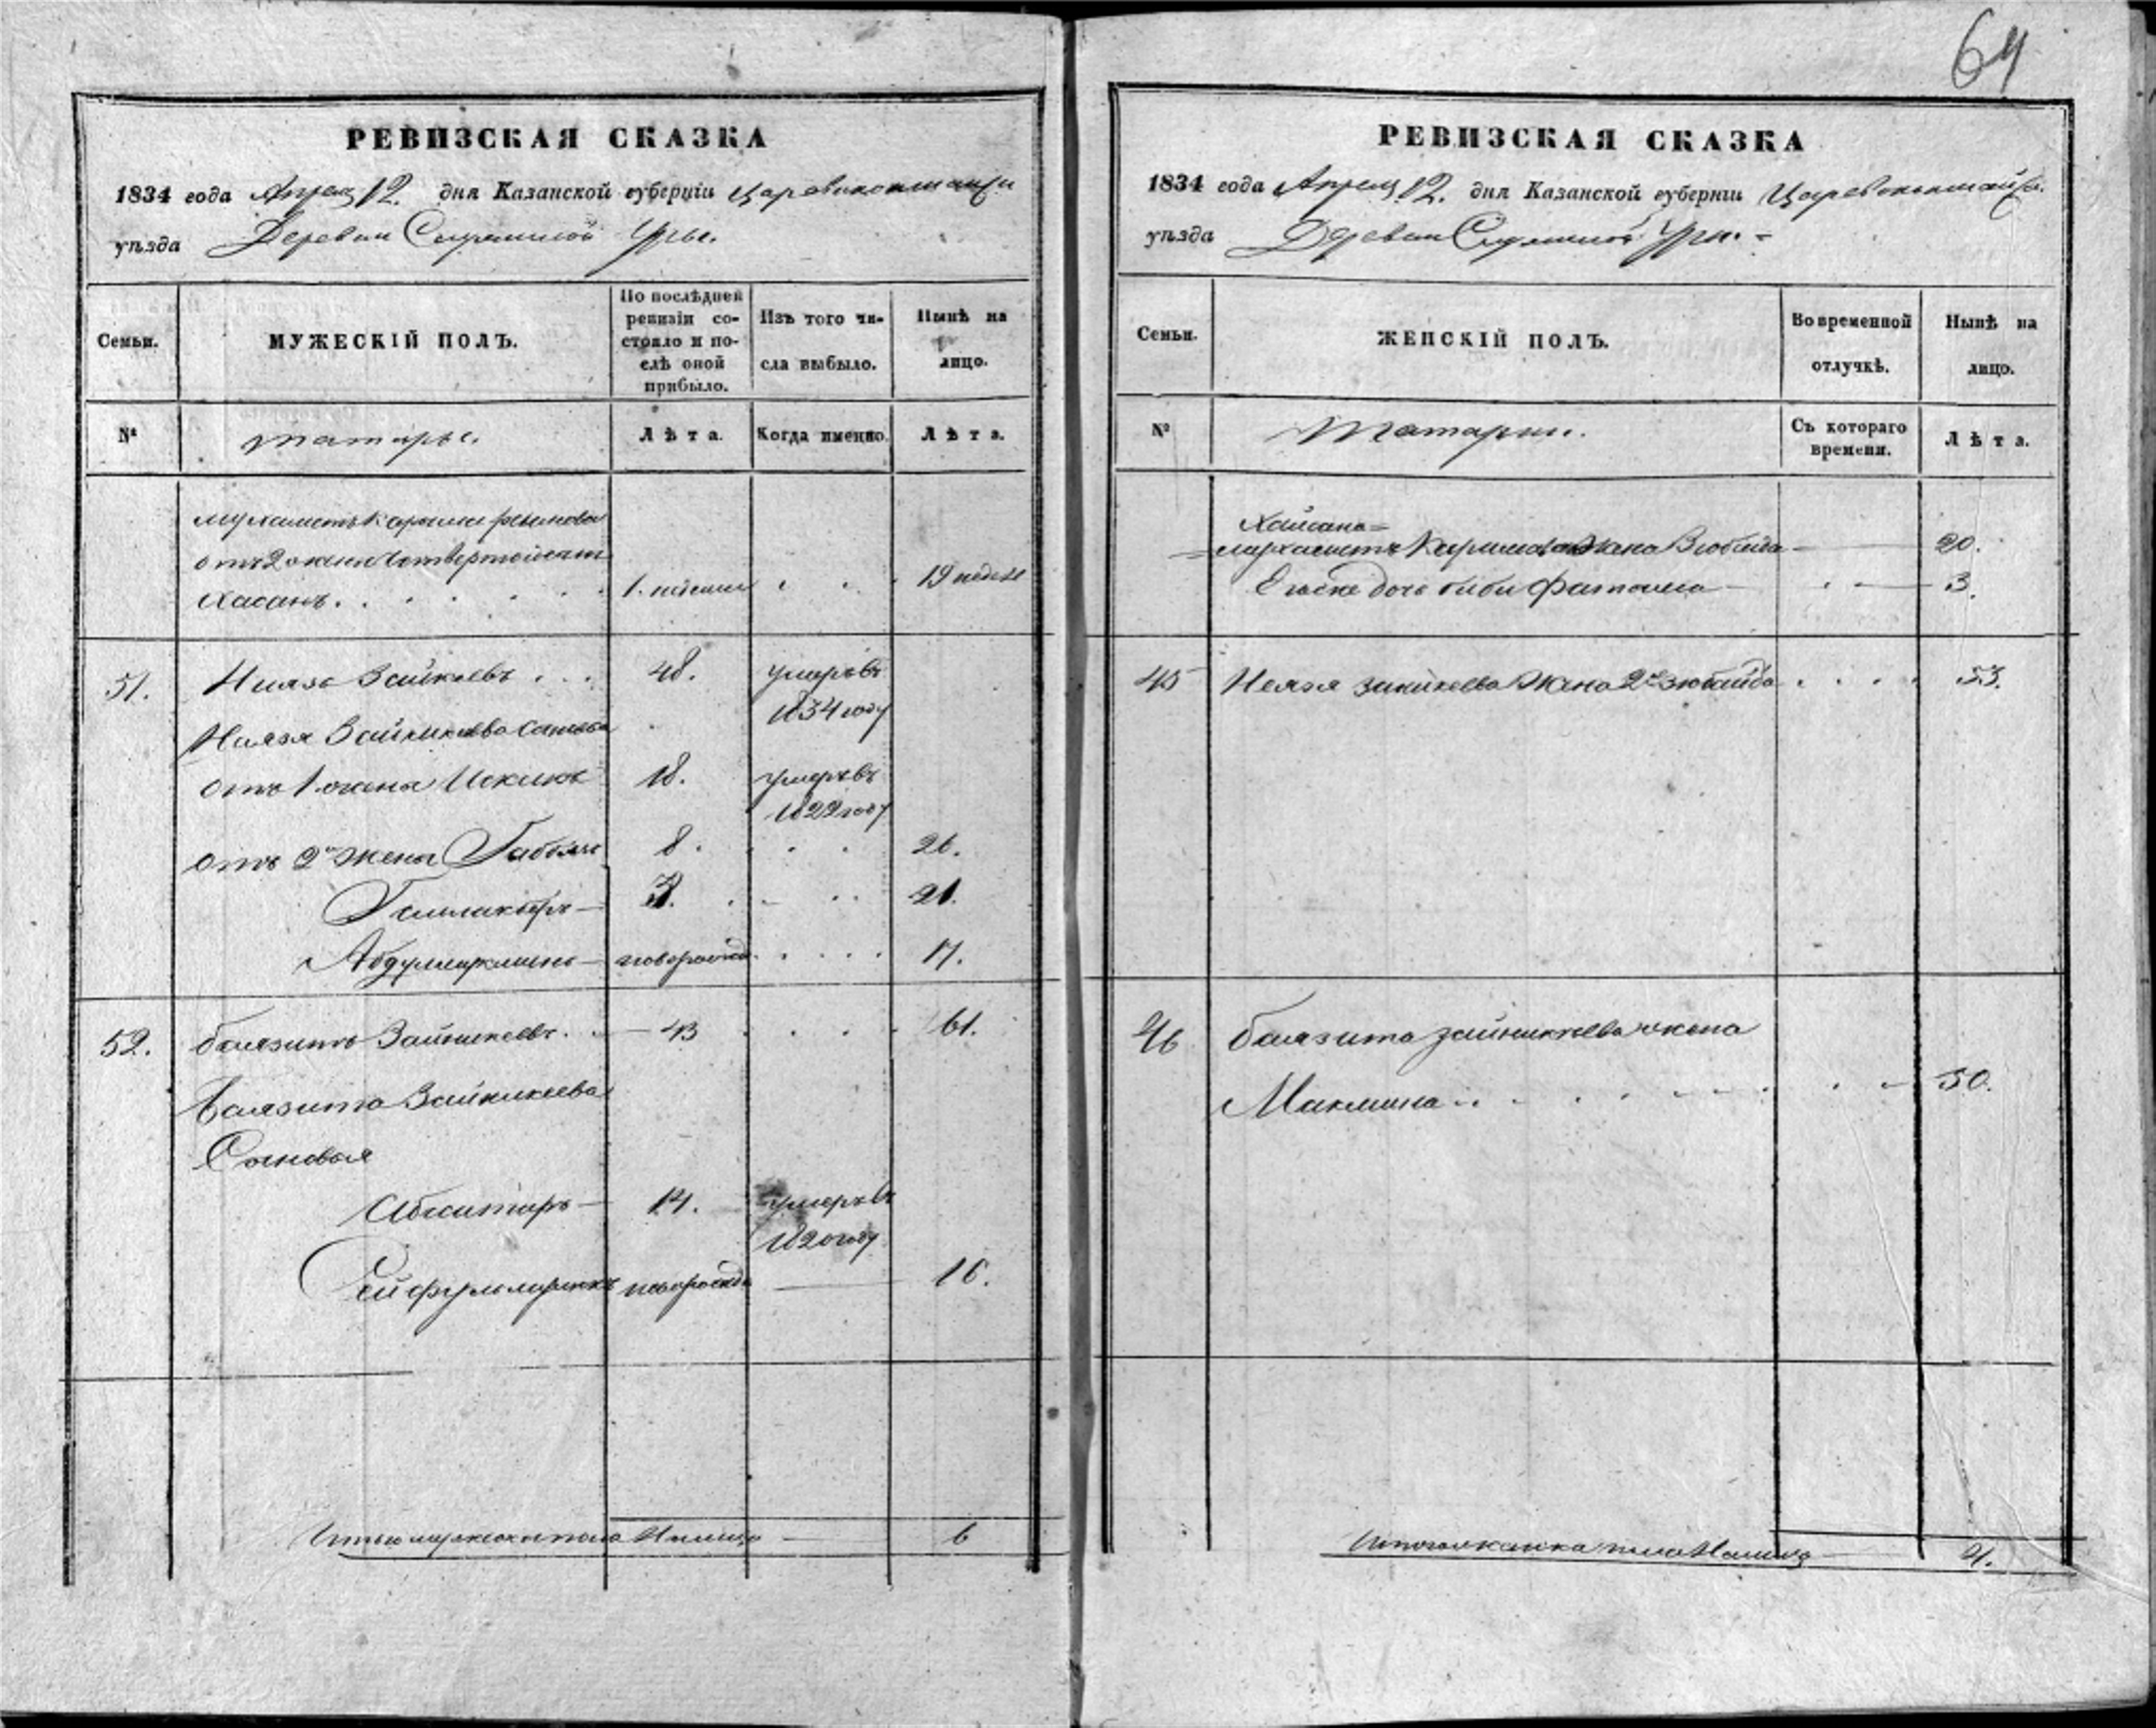 64
РЕВИЗСКАЯ СКАЗКА
1834 года Апреля 12. дня Казанской губерніи Царевококшайск.
уѣзда Деревни Служилой Уры.
Семьи.
МУЖЕСКІЙ ПОЛЪ.
По послѣдней ревизіи состояло и послѣ оной прибыло.
Изъ того числа выбыло.
Нынѣ на лицо.
№
татары.
Лѣта.
Когда именно.
Лѣта.
Мухаметъ Карима
отъ 2 жены четвертой сынъ
Хасанъ. 1. недели 19 недель
51. Ниязъ Зайкеевъ 48. умеръ въ
1834 году
Ниязя Зайкикеева сыновья
отъ 1 жены Искакъ 18. умеръ въ
1822 году
отъ 2й жены 8. 26.
3. 21.
новорожд. 17.
52. баязитъ Зайникеевъ. 43 61.
Баязита Зайникеева
Сыновья
Абситаръ 14. умеръ въ
1820 году
Сейфульмулюкъ новорожд. 16.
Итого мужеска пола Налицо 6
РЕВИЗСКАЯ СКАЗКА
1834 года Апреля 12. дня Казанской губерніи Царевококшайск.
уѣзда Деревни Служилой Уры.
Семьи.
ЖЕНСКІЙ ПОЛЪ.
Во временной отлучкѣ.
Нынѣ на лицо.
№
татарки.
Съ котораго времени.
Лѣта.
Хасана
Мухаметъ Каримова Жена Зюбайда 20.
Ево же дочь биби Фатыма 3.
45 Неязя Жена 2я зюбайда 53.
46 баязита зайникеева жена
Макмина 50.
Итого женска пола Налицо 4.